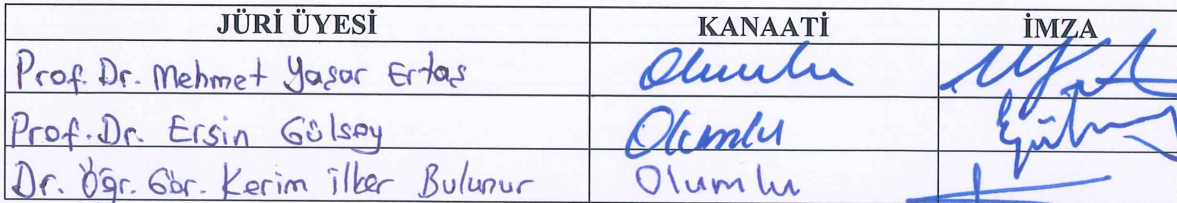 JÜRİ ÜYESİ KANAATİ İMZA
Prof. Dr. Mehmet Yaşar Ertaş Olumlu
Prof. Dr. Ersin Gülsoy Olumlu
Dr. Öğr. Gör. Kerim İlker Bulunur Olumlu